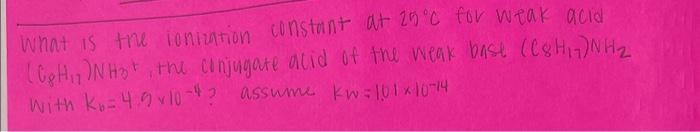 What is the ionization constant at 25°C for weak acid
(C8H17)NH3+, the conjugate acid of the weak base (C8H17)NH2
With Kb=4.9x10-4? assume Kw=1.01x10-14